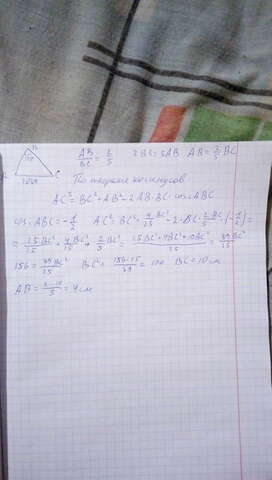 B
120°
A 2√39 C
AB/BC = 2/5   2BC = 5AB   AB = 2/5 BC
По теореме косинусов
AC² = BC² + AB² - 2AB·BC·cos ABC
cos ABC = -1/2   AC² = BC² + 4/25 BC² - 2·BC·2/5 BC·(-1/2) =
= 25/25 BC² + 4/25 BC² + 2/5 BC² = (25BC² + 4BC² + 10BC²)/25 = 39BC²/25
156 = 39BC²/25   BC² = 156·25/39 = 100   BC = 10 см
AB = 2·10/5 = 4 см